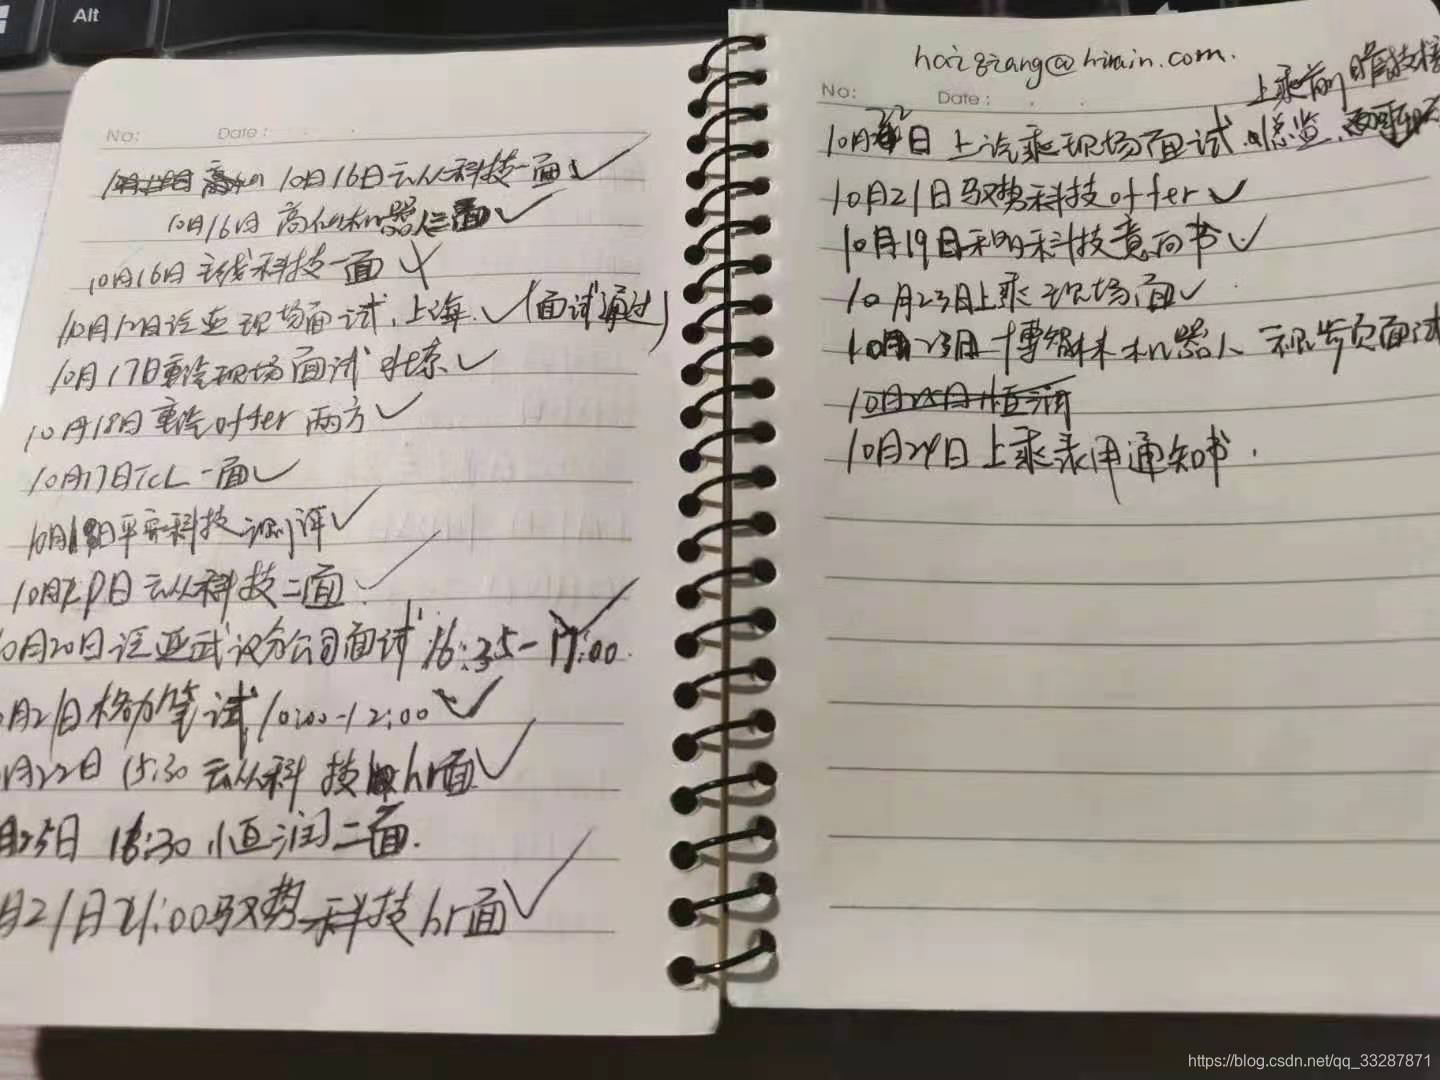 Alt
No:
Date :
10月16日云从科技一面
10月16日高仙机器人二面
10月16日 科技一面
10月17日泛亚现场面试,上海. (面试通过)
10月17日重汽现场面试 北京
10月18日重汽offer 两方
10月17日TCL 一面
平安科技测评
云从科技二面
10月20日泛亚武汉分公司面试 16:35-17:00.
月21日格力笔试 10:00-12:00
月22日 15:30 云从科技 hr面
月25日 16:30 恒润二面.
月21日21:00驭势科技hr面
haiqiang@hirain.com.
No:
Date :
上乘前瞻技
10月22日 上汽乘现场面试 总监
10月21日驭势科技offer
10月19日禾多科技意向书
10月23日上乘现场面
10月23日 博智林机器人 视 面试
10月25日恒润
10月24日上乘录用通知书.
https://blog.csdn.net/qq_33287871